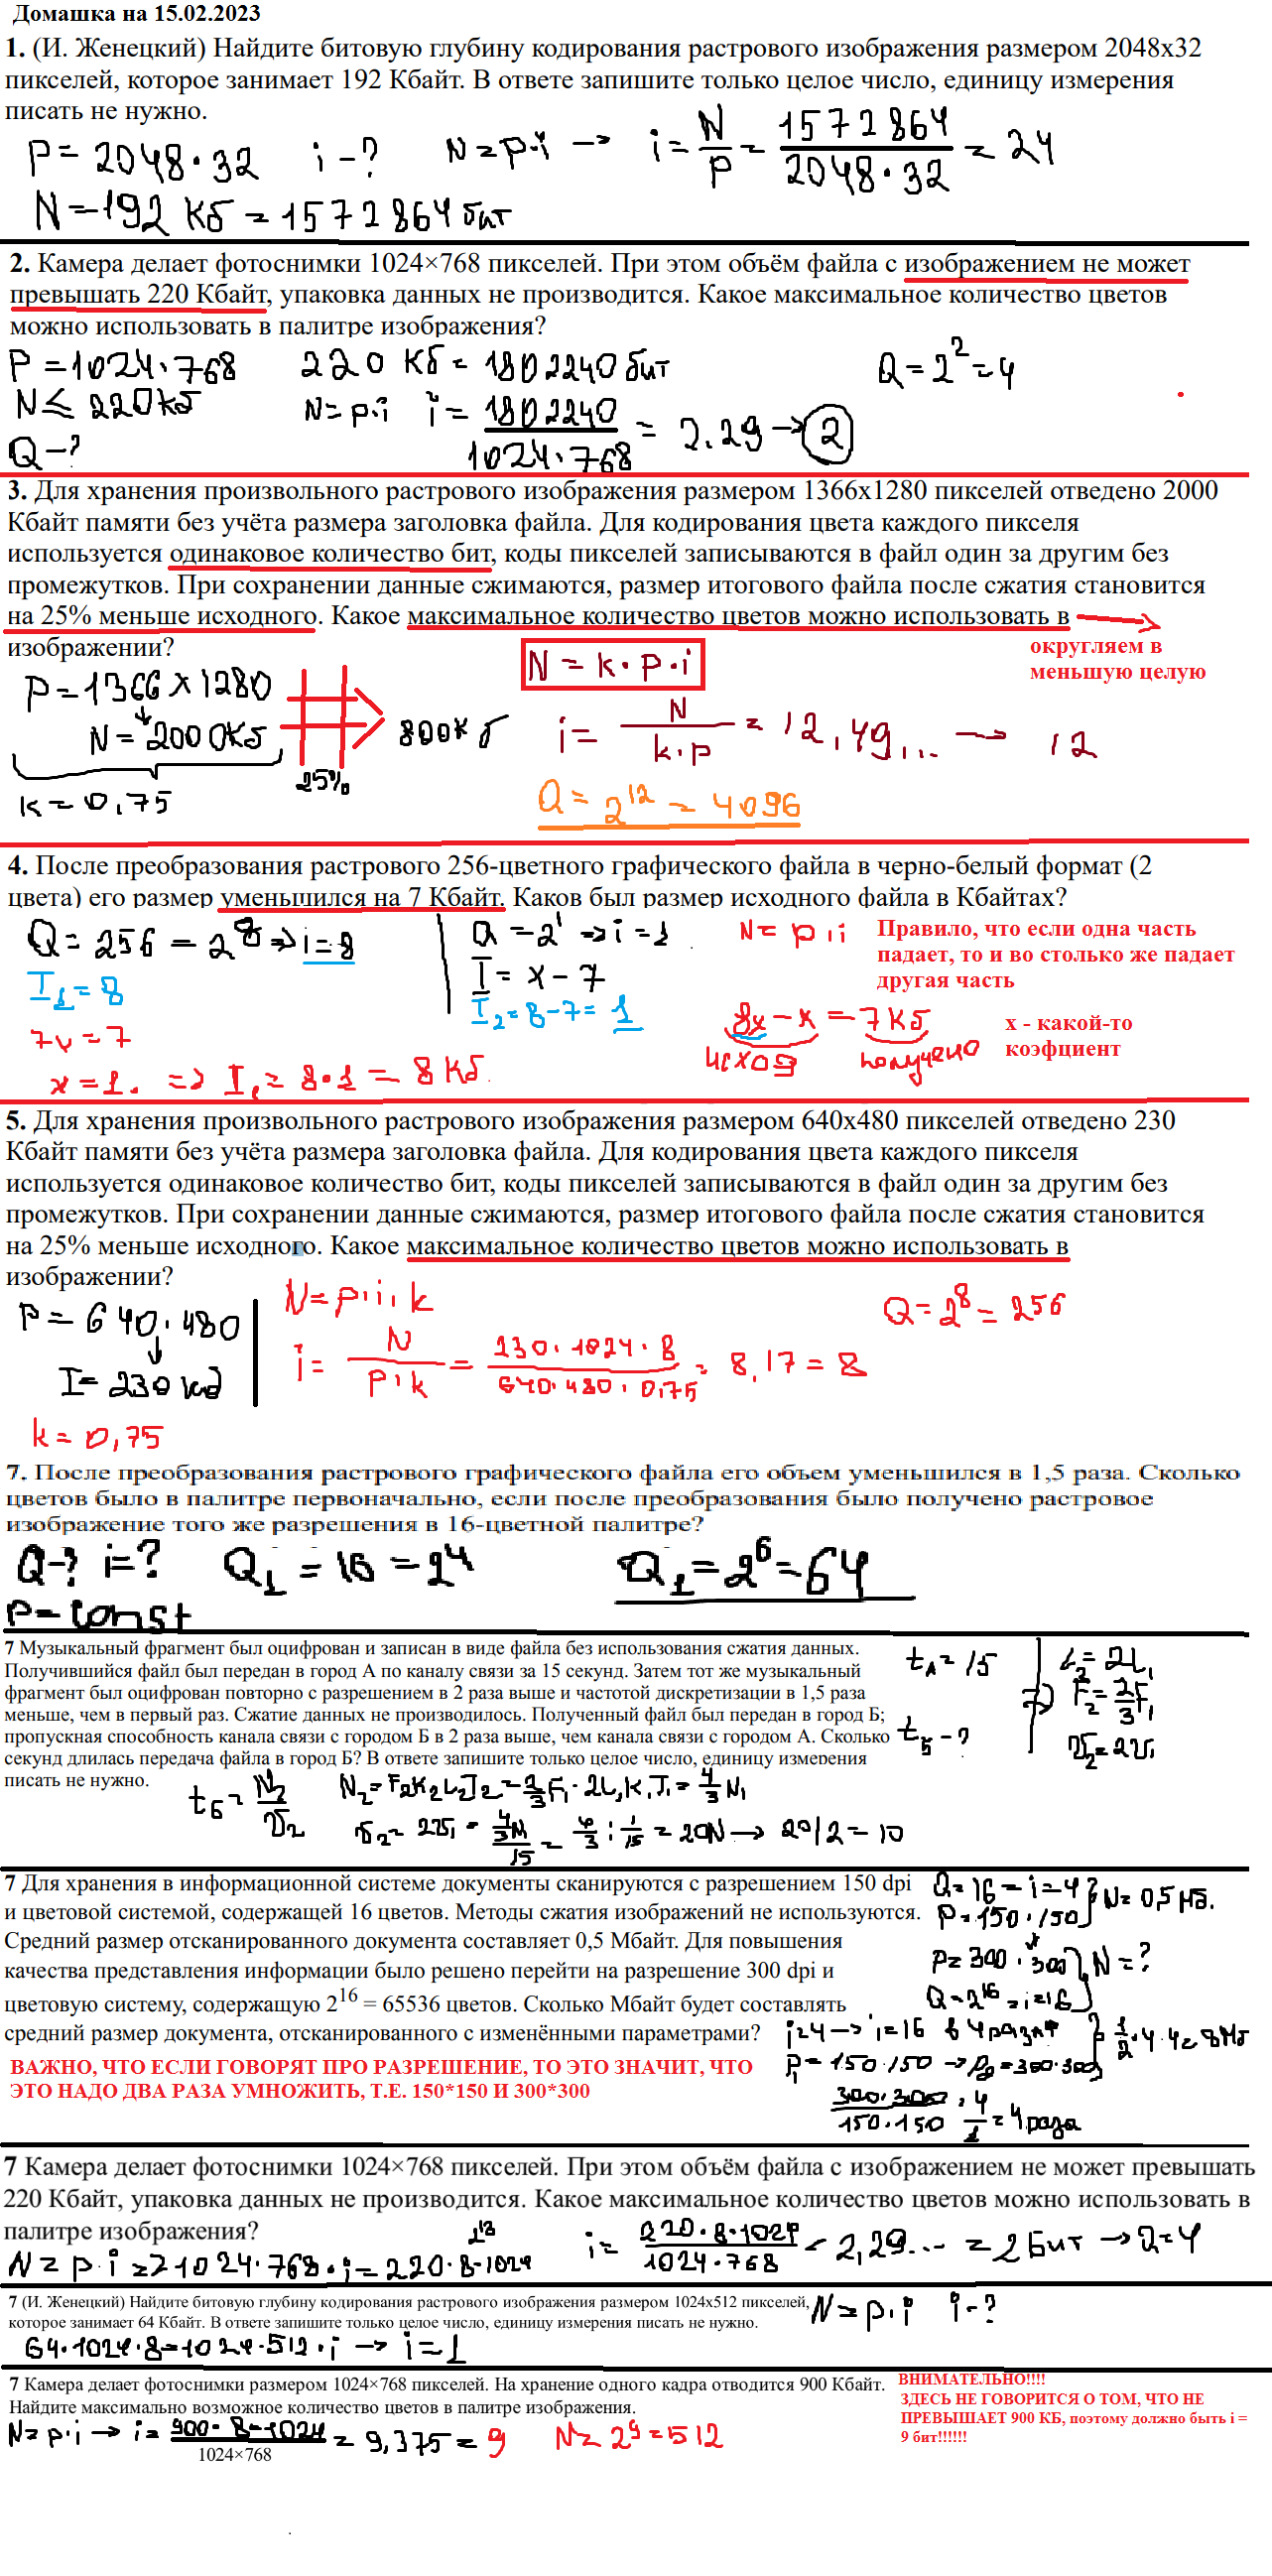 Домашка на 15.02.2023
1. (И. Женецкий) Найдите битовую глубину кодирования растрового изображения размером 2048x32
пикселей, которое занимает 192 Кбайт. В ответе запишите только целое число, единицу измерения
писать не нужно.
P = 2048·32 i - ? N = p·i → i = N/P = 1572864/2048·32 = 24
N = 192 Кб = 1572864 бит
2. Камера делает фотоснимки 1024×768 пикселей. При этом объём файла с изображением не может
превышать 220 Кбайт, упаковка данных не производится. Какое максимальное количество цветов
можно использовать в палитре изображения?
P = 1024·768 220 Кб = 1802240 бит Q = 2^2 = 4
N ≤ 220Кб N = p·i i = 1802240/1024·768 = 2.29 → 2
Q - ?
3. Для хранения произвольного растрового изображения размером 1366x1280 пикселей отведено 2000
Кбайт памяти без учёта размера заголовка файла. Для кодирования цвета каждого пикселя
используется одинаковое количество бит, коды пикселей записываются в файл один за другим без
промежутков. При сохранении данные сжимаются, размер итогового файла после сжатия становится
на 25% меньше исходного. Какое максимальное количество цветов можно использовать в
изображении?
округляем в
меньшую целую
P = 1366 x 1280 N = k·p·i
N = 2000Кб 25% 800Кб i = N/k·p = 12,49... → 12
k = 0,75 Q = 2^12 = 4096
4. После преобразования растрового 256-цветного графического файла в черно-белый формат (2
цвета) его размер уменьшился на 7 Кбайт. Каков был размер исходного файла в Кбайтах?
Q = 256 = 2^8 => i = 8 Q = 2^1 => i = 1 N = p·i
Правило, что если одна часть
падает, то и во столько же падает
другая часть
I1 = 8 I = x - 7
I2 = 8-7 = 1
7x = 7 8x - x = 7Кб
исход получено
х - какой-то
коэфциент
x = 1. => I1 = 8·1 = 8 Кб.
5. Для хранения произвольного растрового изображения размером 640x480 пикселей отведено 230
Кбайт памяти без учёта размера заголовка файла. Для кодирования цвета каждого пикселя
используется одинаковое количество бит, коды пикселей записываются в файл один за другим без
промежутков. При сохранении данные сжимаются, размер итогового файла после сжатия становится
на 25% меньше исходного. Какое максимальное количество цветов можно использовать в
изображении?
P = 640·480 N = p·i·k Q = 2^8 = 256
I = 230 Кб i = N/P·k = 230·1024·8/640·480·0,75 = 8,17 = 8
k = 0,75
7. После преобразования растрового графического файла его объем уменьшился в 1,5 раза. Сколько
цветов было в палитре первоначально, если после преобразования было получено растровое
изображение того же разрешения в 16-цветной палитре?
Q - ? i = ? Q1 = 16 = 2^4 Q1 = 2^6 = 64
P = const
7 Музыкальный фрагмент был оцифрован и записан в виде файла без использования сжатия данных.
Получившийся файл был передан в город А по каналу связи за 15 секунд. Затем тот же музыкальный
фрагмент был оцифрован повторно с разрешением в 2 раза выше и частотой дискретизации в 1,5 раза
меньше, чем в первый раз. Сжатие данных не производилось. Полученный файл был передан в город Б;
пропускная способность канала связи с городом Б в 2 раза выше, чем канала связи с городом А. Сколько
секунд длилась передача файла в город Б? В ответе запишите только целое число, единицу измерения
писать не нужно.
tA = 15 L2 = 2L1
=> F2 = 2/3 F1
tБ - ? V2 = 2V1
tБ = N2/V2 N2 = F2K2L2T2 = 2/3 F1·2L1K1T1 = 4/3 N1
V2 = 2V1 = 4/3N/15 = 4/3 : 1/15 = 20N → 20/2 = 10
7 Для хранения в информационной системе документы сканируются с разрешением 150 dpi
и цветовой системой, содержащей 16 цветов. Методы сжатия изображений не используются.
Средний размер отсканированного документа составляет 0,5 Мбайт. Для повышения
качества представления информации было решено перейти на разрешение 300 dpi и
цветовую систему, содержащую 2^16 = 65536 цветов. Сколько Мбайт будет составлять
средний размер документа, отсканированного с изменёнными параметрами?
Q = 16 = i = 4
P = 150·150 N = 0,5 Мб.
P = 300·300 N = ?
Q = 2^16 = i = 16
i = 4 → i = 16 в 4 раза 1/2·4·4 = 8 Мб
P1 = 150·150 → P2 = 300·300
300·300/150·150 = 4/1 = 4 раза
ВАЖНО, ЧТО ЕСЛИ ГОВОРЯТ ПРО РАЗРЕШЕНИЕ, ТО ЭТО ЗНАЧИТ, ЧТО
ЭТО НАДО ДВА РАЗА УМНОЖИТЬ, Т.Е. 150*150 И 300*300
7 Камера делает фотоснимки 1024×768 пикселей. При этом объём файла с изображением не может превышать
220 Кбайт, упаковка данных не производится. Какое максимальное количество цветов можно использовать в
палитре изображения?
2^13
N = p·i => 1024·768·i = 220·8·1024 i = 220·8·1024/1024·768 = 2,29... = 2 бит → 2 = 4
7 (И. Женецкий) Найдите битовую глубину кодирования растрового изображения размером 1024x512 пикселей,
которое занимает 64 Кбайт. В ответе запишите только целое число, единицу измерения писать не нужно.
N = p·i i - ?
64·1024·8 = 1024·512·i → i = 1
7 Камера делает фотоснимки размером 1024×768 пикселей. На хранение одного кадра отводится 900 Кбайт.
Найдите максимально возможное количество цветов в палитре изображения.
ВНИМАТЕЛЬНО!!!!
ЗДЕСЬ НЕ ГОВОРИТСЯ О ТОМ, ЧТО НЕ
ПРЕВЫШАЕТ 900 КБ, поэтому должно быть i =
9 бит!!!!!!
N = p·i → i = 900·8·1024/1024×768 = 9,375 = 9 N = 2^9 = 512